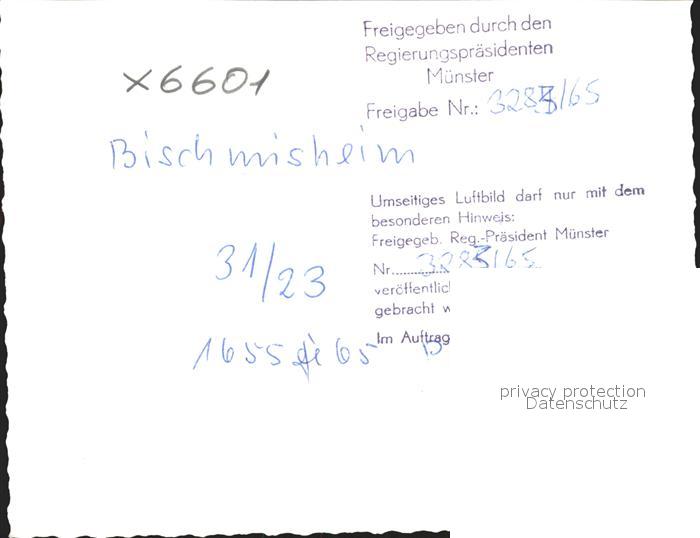 Freigegeben durch den
Regierungspräsidenten
Münster
Freigabe Nr.: /65
x6601
Bischmisheim
Umseitiges Luftbild darf nur mit dem
besonderen Hinweis:
Freigegeb. Reg.-Präsident Münster
Nr. /65
veröffentlic
gebracht w
31/23
Im Auftrag
1655 65
privacy protection
Datenschutz